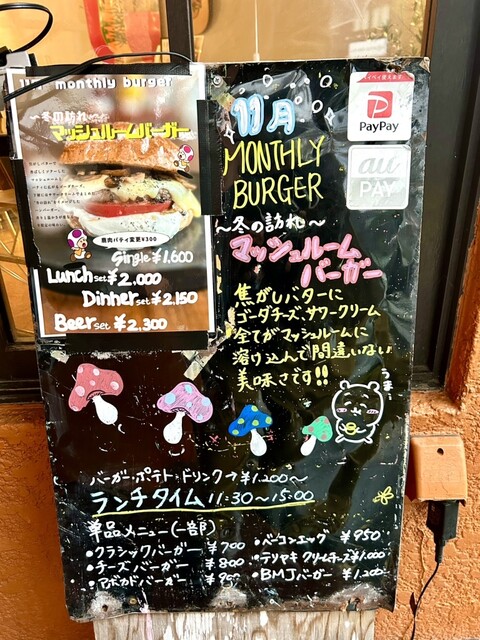 11月 monthly burger
～冬の訪れ～
マッシュルームバーガー
鹿肉パティ変更¥300
Single ¥1.600
Lunch set ¥2.000
Dinner set ¥2.150
Beer set ¥2.300
11月
MONTHLY
BURGER
～冬の訪れ～
マッシュルーム
バーガー
焦がしバターに
ゴーダチーズ、サワークリーム
全てがマッシュルームに
溶け込んで間違いない
美味さです!!
PayPay
au
PAY
うまー
バーガー・ポテト・ドリンク→¥1,200～
ランチタイム 11:30～15:00
単品メニュー(一部)
・クラシックバーガー ¥700
・チーズバーガー ¥800
・アボカドバーガー
・ベーコンエッグ ¥950
・テリヤキクリームチーズ ¥1.000
・BMJバーガー ¥1.200